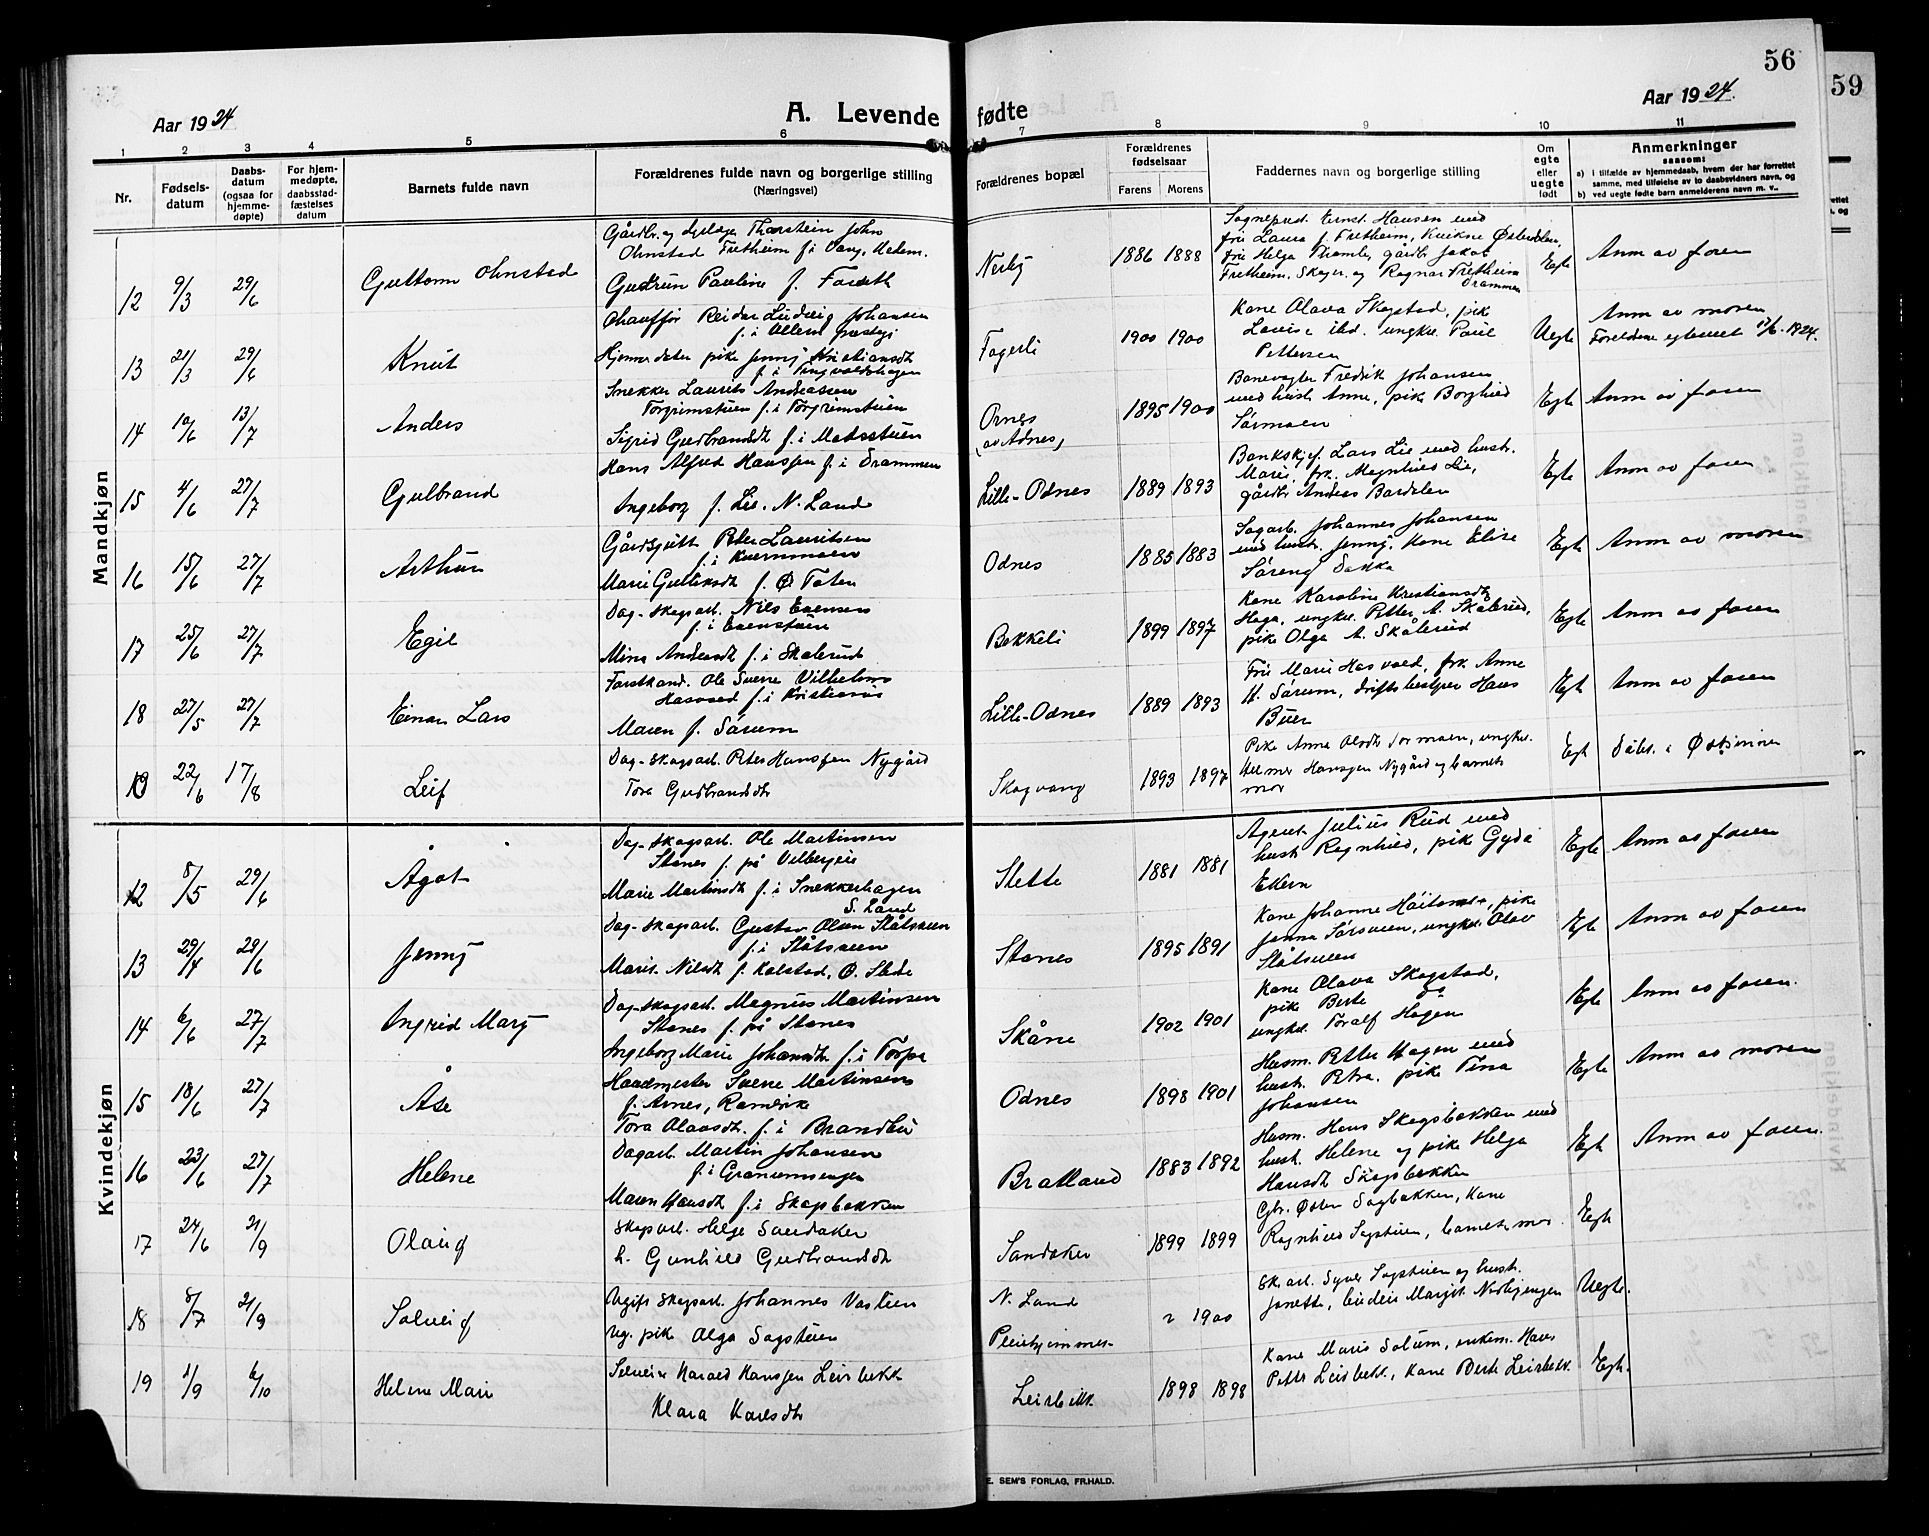 56
59
Aar 1924
A. Levende fødte
Aar 1924.
1 2 3 4 5 6 7 8 9 10 11
Nr.
Fødsels-
datum
Daabs-
datum
(ogsaa for
hjemme-
døpte)
For hjem-
medøpte,
daabsstad-
fæstelses
datum
Barnets fulde navn
Forældrenes fulde navn og borgerlige stilling
(Næringsvei)
Forældrenes bopæl
Forældrenes
fødselsaar
Farens Morens
Faddernes navn og borgerlige stilling
Om
egte
eller
uegte
født
Anmerkninger
saasom:
a) i tilfælde av hjemmedaab, hvem der har forrettet
samme, med tilføielse av to daabsvidners navn, og
b) ved uegte fødte barn anmelderens navn m. v..
Mandkjøn
12 9/3 29/6 Guttorm Ohnstad
Gårdbr. og Thorstein John
Ohnstad Fretheim f. i Vang, Hedem.
Gudrun Pauline f. Foseth
Nerby 1886 1888
Sognepr. Ernst Hansen med
fru Laura f. Fretheim, Kvikne Østerdalen,
fru Helga Thomle, gårdbr. Jakob
Fretheim, Skoger og Ragnar Fretheim
Drammen
Egte Anm av faren
13 21/3 29/6 Knut
Chauffør Reidar Ludvig Johansen
f. i
pike Jenny Kristiansdt
f. i Tingvoldshagen
Fagerli 1900 1900
Kone Olava Skogstad, pik
Lovise ibd. ungkr. Paul
Pettersen
Uegte Anm av moren
Foreldrene egteviet 17/6-1924.
14 10/6 13/7 Anders
Snekker Laurits Andreassen
Torgrimstuen f. i Torgrimstuen
Sigrid Gudbrandsdt f. i Madsstuen
Ornes
(av Odnes) 1895 1900
Banevogter Fredrik Johansen
med hust. Anne, pike Borghild
Sørmoen
Egte Anm av faren
15 4/6 27/7 Gulbrand
Hans Alfred Hanssen f. i Drammen
Ingeborg f. Lie. N. Land
Lille-Odnes 1889 1893
Bankskj. Lars Lie med hustr.
Marie, frk. Magnhild Lie,
gårdbr. Andreas Bardalen
Egte Anm av faren
16 15/6 27/7 Arthur
Gårdsgutt Peter Lauritsen
f. i Kvernmoen
Marie Gulliksdt f. Ø Toten
Odnes 1885 1883
Sagarb. Johannes Johansen
med hustr. Jenny, Kone Elise
Søreng Dokka
Egte Anm av moren
17 25/6 27/7 Egil
Dag-skogsarb. Nils Evensen
f. i Evenstuen
Mina Andersdt f. i Skalerud
Bekkeli 1899 1897
Kone Karoline Kristiansdt
Haga, ungkr. Petter A. Skålerud,
pik Olga A. Skålerud
Egte Anm av faren
18 27/5 27/7 Einar Lars
Forstkand. Ole Sverre Vilhelms
Hasvold f. i Kristiania
Maren f. Sørum
Lille-Odnes 1889 1893
Fru Marie Hasvold, frk. Anne
H. Sørum, driftsbestyrer Hans
Buer
Egte Anm av faren
19 22/6 17/8 Leif
Dag-skogsarb. Peter Hanssen Nygård
Tora Gudbrandsdtr
Skogvang 1893 1897
Pike Anna Olsdtr Sørmoen, ungkr.
Helmer Hanssen Nygård og barnets
mor
Egte Døbt i Østsinni
Kvindekjøn
12 8/5 29/6 Ågot
Dag-skogsarb. Ole Martinsen
Stenes f. på Velbergeie
Marie Martinsdt f. i Snekkerhagen
S. Land
Slette 1881 1881
Agent Julius Rud med
hust. Ragnhild, pik Gyda
Ekern
Egte Anm av faren
13 29/4 29/6 Jenny
Dag-skogsarb. Gustav Olsen Slåtsveen
f. i Slåtsveen
Marie Nilsdt f. Kalstad, Ø. Slidre
Stenes 1895 1891
Kone Johanne Høitomt, pike
Janna Sørsveen, ungkr. Olav
Slåtsveen
Egte Anm av faren
14 6/6 27/7 Ingrid Mary
Dag-skogsarb. Magnus Martinsen
Stenes f. på Stenes
Ingeborg Marie Johansdt f. i Torpa
Skåne 1902 1901
Kone Olava Skogstad,
pik Berte do
ungkr. Toralf Hagen
Egte Anm av faren.
15 18/6 27/7 Åse
Sverre Martinsen
f. Arnes, Romerike
Tora Olausdt. f. i Brandbu
Odnes 1898 1901
Husm. Petter Hagen med
hust. Petra, pike Tina
Johansen
Egte Anm av moren
16 23/6 27/7 Helene
Dagarb. Martin Johansen
f. i Granumsengen
Maren Hansdt f. i Skogsbakken
Bratland 1883 1892
Husm. Hans Skogsbakken med
hust. Helene og pik Helga
Hansdt Skogsbakken
Egte Anm av faren.
17 24/6 21/9 Olaug
Skogsarb. Helge Sandaker
h. Gunhild Gudbrandsdt
Sandaker 1899 1899
Gbr. Østen Sagbakken, Kone
Ragnhild Sagstuen, barnets mor.
Egte
18 8/7 21/9 Solveig
Ugift skogsarb. Johannes Vastuen
Ug. pike Olga Sagstuen
N. Land
Pleiehjemmet 1900
Sk. arb. Syver Sagstuen og hustr.
Janette, budeie Margit Nordbyengen
Uegte.
19 1/9 6/10 Helene Marie
Harald Hanssen Leirbekk
Klara Karlsdtr
Leirbekk 1898 1898
Kone Maris Solum, enkem. Hans
Petter Leirbekk, Kone Berte Leirbekk
Egte.
E. SEM'S FORLAG, FR.HALD.